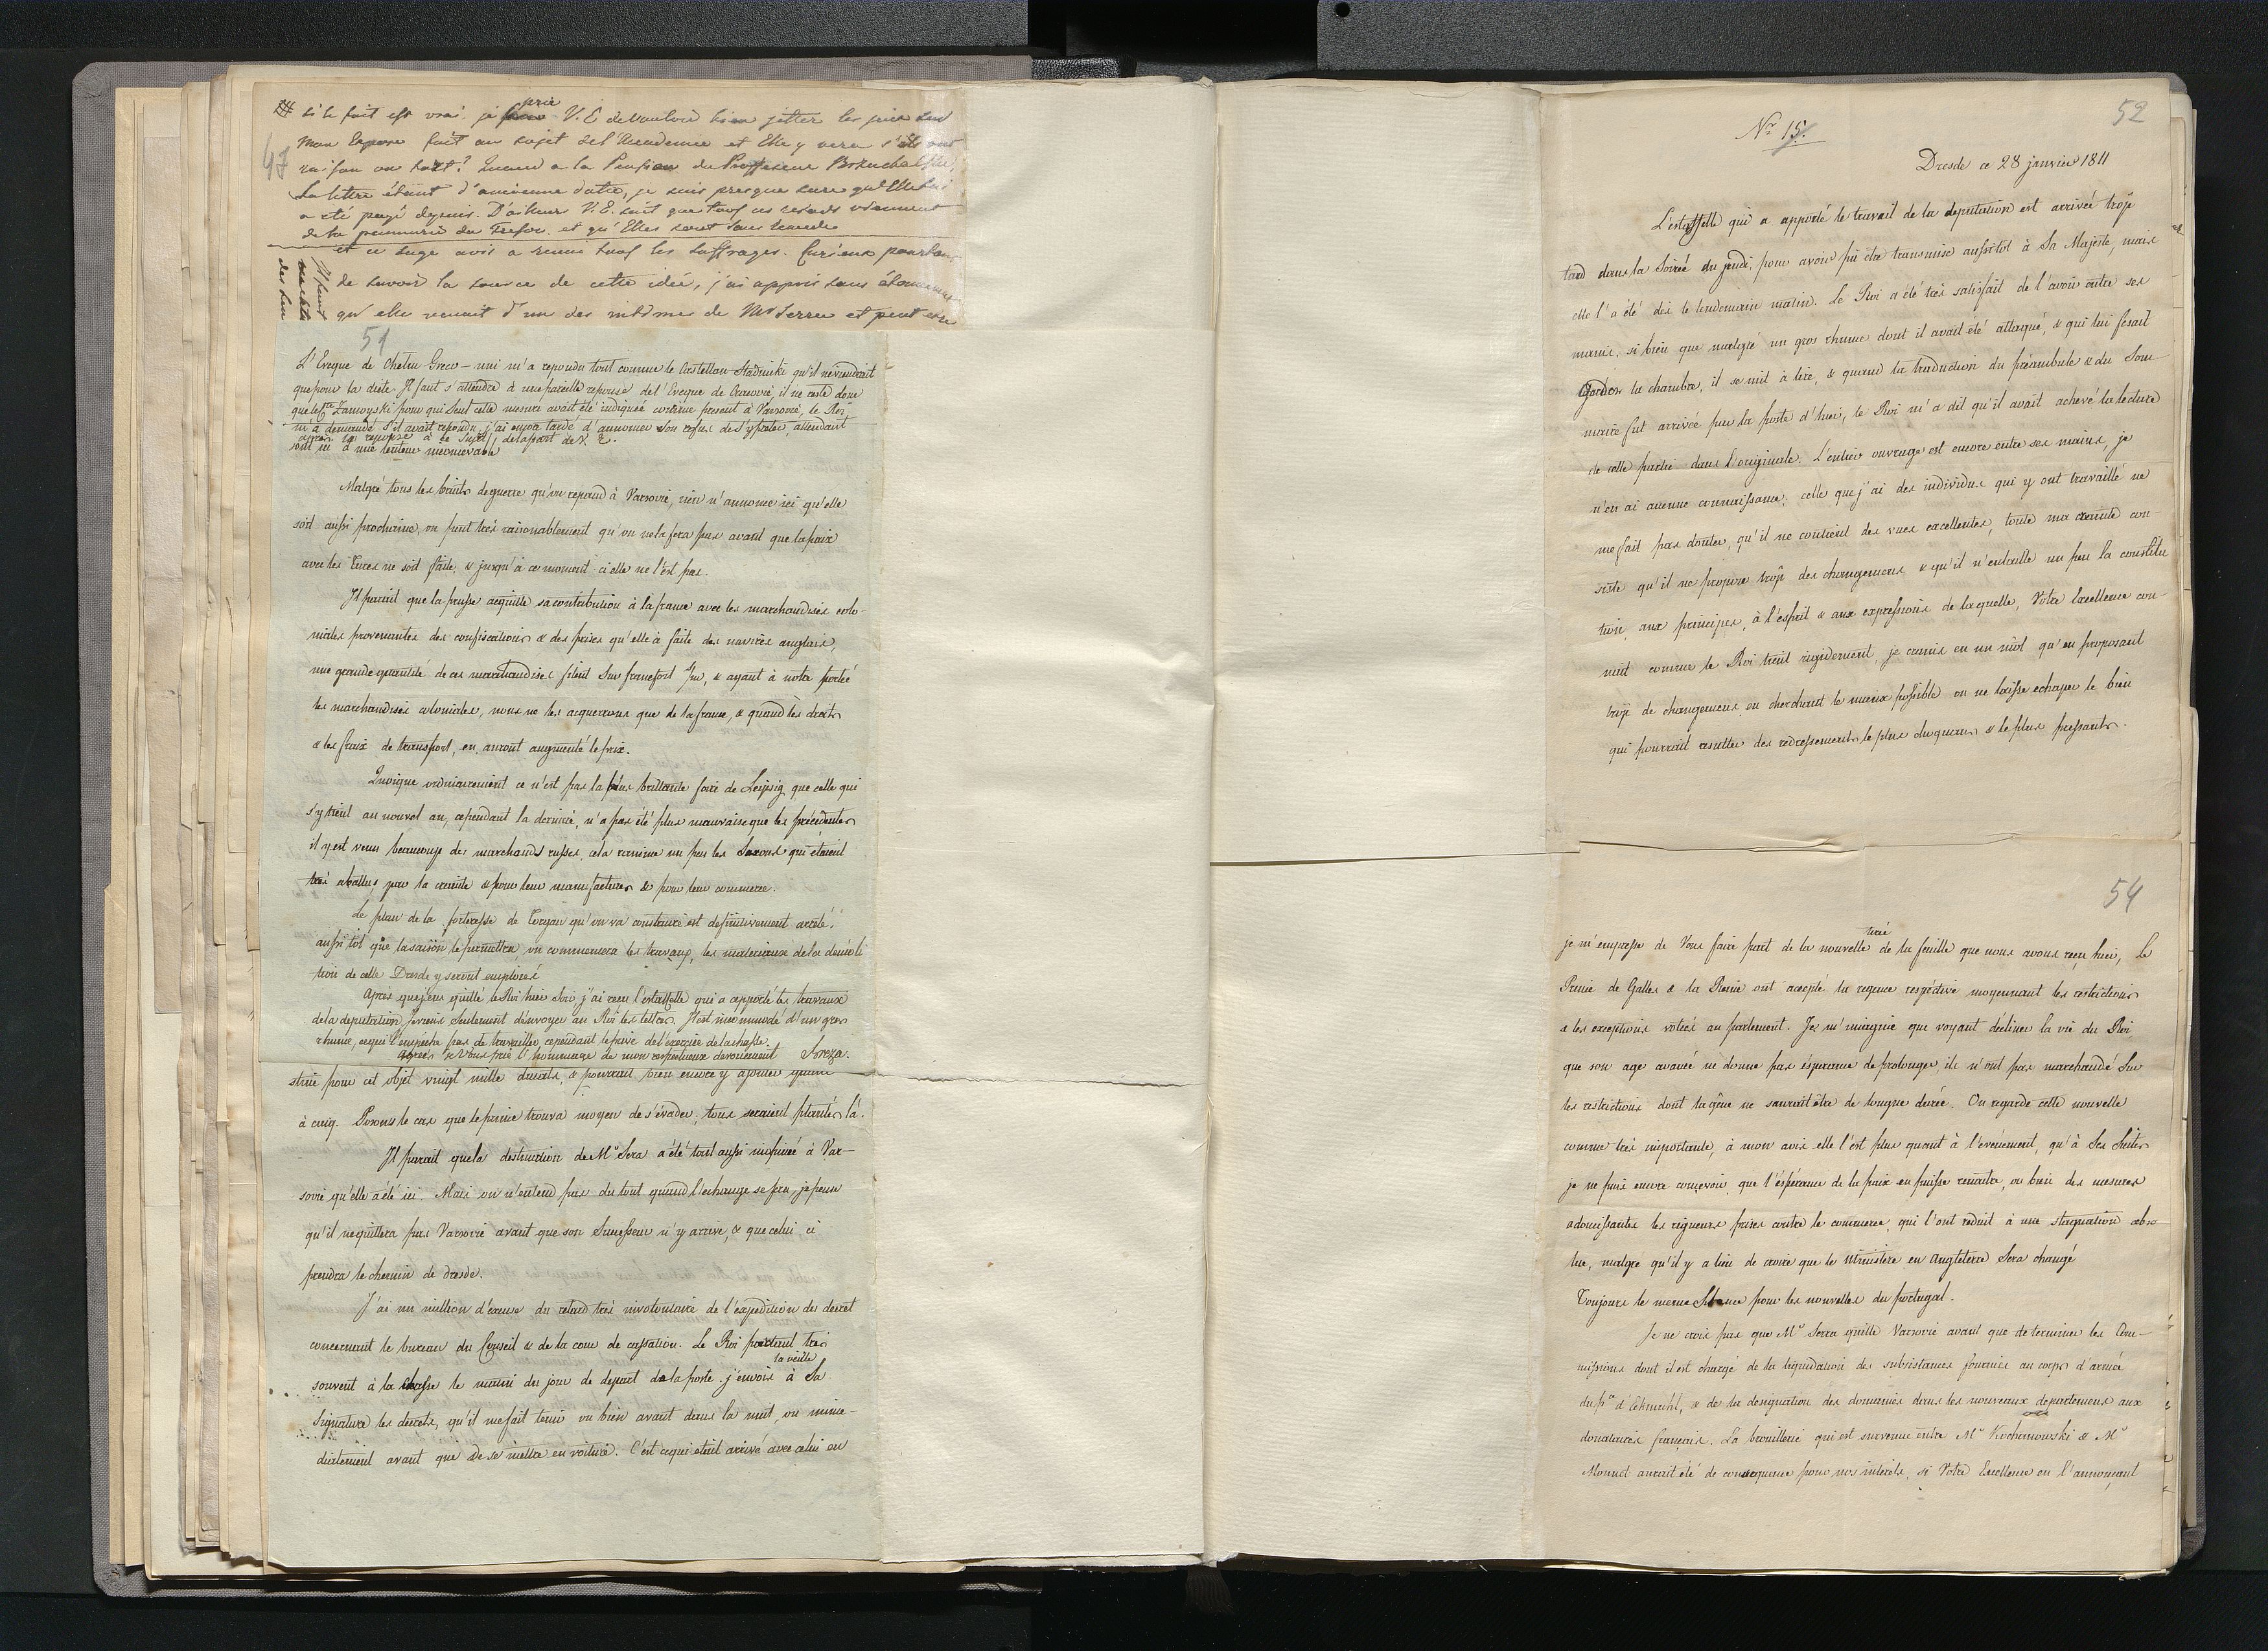 si le fait est vrai. je prie V. E de vouloir bien jetter les yeux sur
mon exposé fait au sujet de l'Academie et Elle y verra s'ils ont
47
raison ou tort? Quand a la Pension du Professeur
La lettre étant d'ancienne datte, je suis presque sure qu'Elle lui
a été payé depuis. D'ailleurs V. E. sait que tous ces retards viennent
de la penurie du Tresor. et qu'Elles sont sans remede
et ce sage avis a reuni tous les suffrages. Curieux pourtant
de savoir la source de cette idée, j'ai appris sans étonnement
qu'elle venait d'un des intimes de Mr Serra et peut etre
51
L'Eveque de Chelm Greco-uni m'a repondu tout comme le Castellan Stadnicki qu'il ne viendrait
que pour la diete. Il faut s'attendre à une pareille reponse de l'Eveque de Cracovie, il ne reste donc
que le Cte Zamoyski pour qui seul cette mesure avait été indiquée comme present à Varsovie, le Roi
m'a demandé s'il avait repondu, j'ai encore tardé d'annoncer son refus de s'y preter, attendant
apres la reponse à ce sujet de la part de V. E.
sont ici d'une lenteur inconcevable
Malgré tous les bruits de guerre qu'on repand à Varsovie, rien n'annonce ici qu'elle
soit aussi prochaine, on peut très raisonablement qu'on ne la fera pas avant que la paix
avec les Turcs ne soit faite, & jusqu'à ce moment-ci elle ne l'est pas.
Il parait que la prusse acquitte sa contribution à la france avec les marchandises colo-
niales provenantes des confiscations & des prises qu'elle a faite des navires anglais,
une grande quantité de ces marchandises filent sur francfort s/m, & ayant à notre portée
les marchandises coloniales, nous ne les acquerrons que de la france, & quand les droits
& les fraix de transport, en auront augmenté le prix.
Quoique ordinairement ce n'est pas la plus brillante foire de Leipsig que celle qui
s'y tient au nouvel an, cependant la derniere, n'a pas été plus mauvaise que les précédentes
il y est venu beaucoup des marchands russes, cela ranime un peu les Saxons qui étaient
très abattus par la crainte & pour leur manufactures & pour leur commerce.
Le plan de la forteresse de Torgau qu'on va construire est definitivement arrêté.
aussi tôt que la saison le permettra, on commencera les travaux, les materiaux de la démoli
tion de celle Dresde y seront emploiés
Après que j'eus quitté le Roi hier soir, j'ai recu l'estaffette qui a apporté les travaux
de la deputation. Je viens seulement d'envoyer au Roi les lettres. Il est incommodé d'un gros
rhume, ce qui l'empêche pas de travailler cependant le prive de l'exercice de la chasse.
Agréez je Vous prie l'hommage de mon respectueux devouement Breza.
stiné pour cet objet vingt mille ducats, & pourrait bien encore y ajouter quatre
à cinq. Posons le cas que le prince trouva moyen de s'évader, tous seraient plantés là.
Il parait que la destination de Mr Sera a été tout aussi inopinée à Var-
sovie qu'elle a été ici. Mais on n'entend pas du tout quand l'echange se fera, je pense
qu'il ne quittera pas Varsovie avant que son successeur n'y arrive, & que celui ci
prendra le chemin de dresde.
J'ai un million d'excuse du retard très involontaire de l'expédition du decret
concernant le bureau du Conseil & de la cour de cassation. Le Roi partant très
la veille
souvent à la chasse le matin du jour de depart de la poste. j'envois à Sa
Signature les decrets, qu'il me fait tenir ou bien avant dans la nuit, ou imme-
diatement avant que de se mettre en voiture. C'est ce qui etait arrivé avec celui en
52
Nr 15.
Dresde ce 28 janvier 1811
L'estaffette qui a apporté le travail de la deputation est arrivée trop
tard dans la soirée du jeudi, pour avoir pû être transmise aussitot à Sa Majesté, mais
elle l'a été dès le lendemain matin. Le Roi a été très satisfait de l'avoir entre ses
mains, si bien que malgré un gros rhume dont il avait été attaqué, & qui lui fesait
Garder la chambre, il se mit à lire, & quand la traduction du préambule & du Som-
maire fut arrivée par la poste d'hier, le Roi m'a dit qu'il avait achevé la lecture
de cette partie dans l'originale. L'entier ouvrage est encore entre ses mains, je
n'en ai aucune connaissance, celle que j'ai des individus qui y ont travaillé ne
me fait pas douter, qu'il ne contient des vues excellentes, toute ma crainte con-
siste qu'il ne propose trop des changemens & qu'il n'entaille un peu la constitu
tion, aux principes, à l'esprit & aux expressions de laquelle, Votre Excellence con-
nait comme le Roi tient rigidement, je crains en un mot qu'en proposant
trop de changemens, en cherchant le mieux possible on ne laisse echaper le bien
qui pourrait resulter des redressements le plus choquans & le plus pressants.
54
tirée
je m'empresse de Vous faire part de la nouvelle de la feuille que nous avons reçu hier, le
Prince de Galles & la Reine ont accepté la regence respective moyennant les restrictions
& les exceptions votées au parlement. Je m'imagine que voyant decliner la vie du Roi
que son age avancé ne donne pas éspérance de prolonger, ils n'ont pas marchandé sur
les restrictions dont la gêne ne saurait être de longue durée. On regarde cette nouvelle
comme très importante, à mon avis elle l'est plus quant à l'évenement, qu'à ses suites
je ne puis encore concevoir que l'éspérance de la paix en puisse renaitre, ou bien des mesures
adoucissantes les rigueurs prises contre le commerce, qui l'ont reduit à une stagnation abso
lue, malgré qu'il y a lieu de croire que le Ministere en Angleterre Sera changé
Toujours le meme Silence pour les nouvelles du portugal.
Je ne crois pas que Mr Serra quitte Varsovie avant que de terminer les Com-
missions dont il est chargé de la liquidation des subsistances fournies au corps d'armée
du Pce d'Eckmühl, & de la designation des domaines dans les nouveaux departemens aux
donataires français. La brouillerie qui est survenue entre Mr Kochanowski & Mr
Mornet aurait été de consequence pour nos interets, si Votre Excellence en l'annonçant